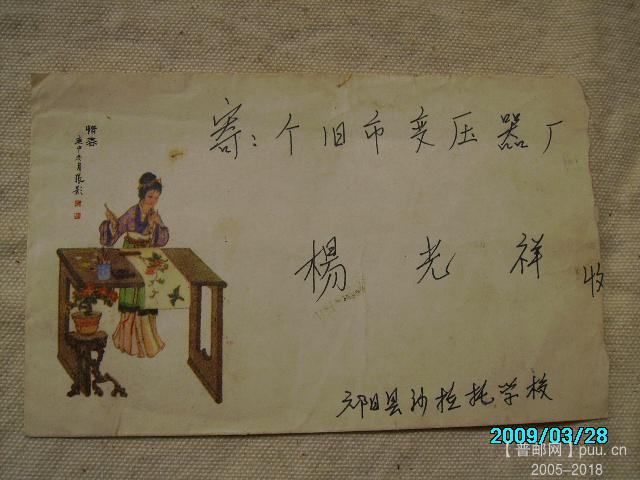 寄：个旧市变压器厂
惜春
庚申冬月
楊光祥 收
元阳县沙拉托学校
2009/03/28
【普邮网】puu.cn
2005–2018